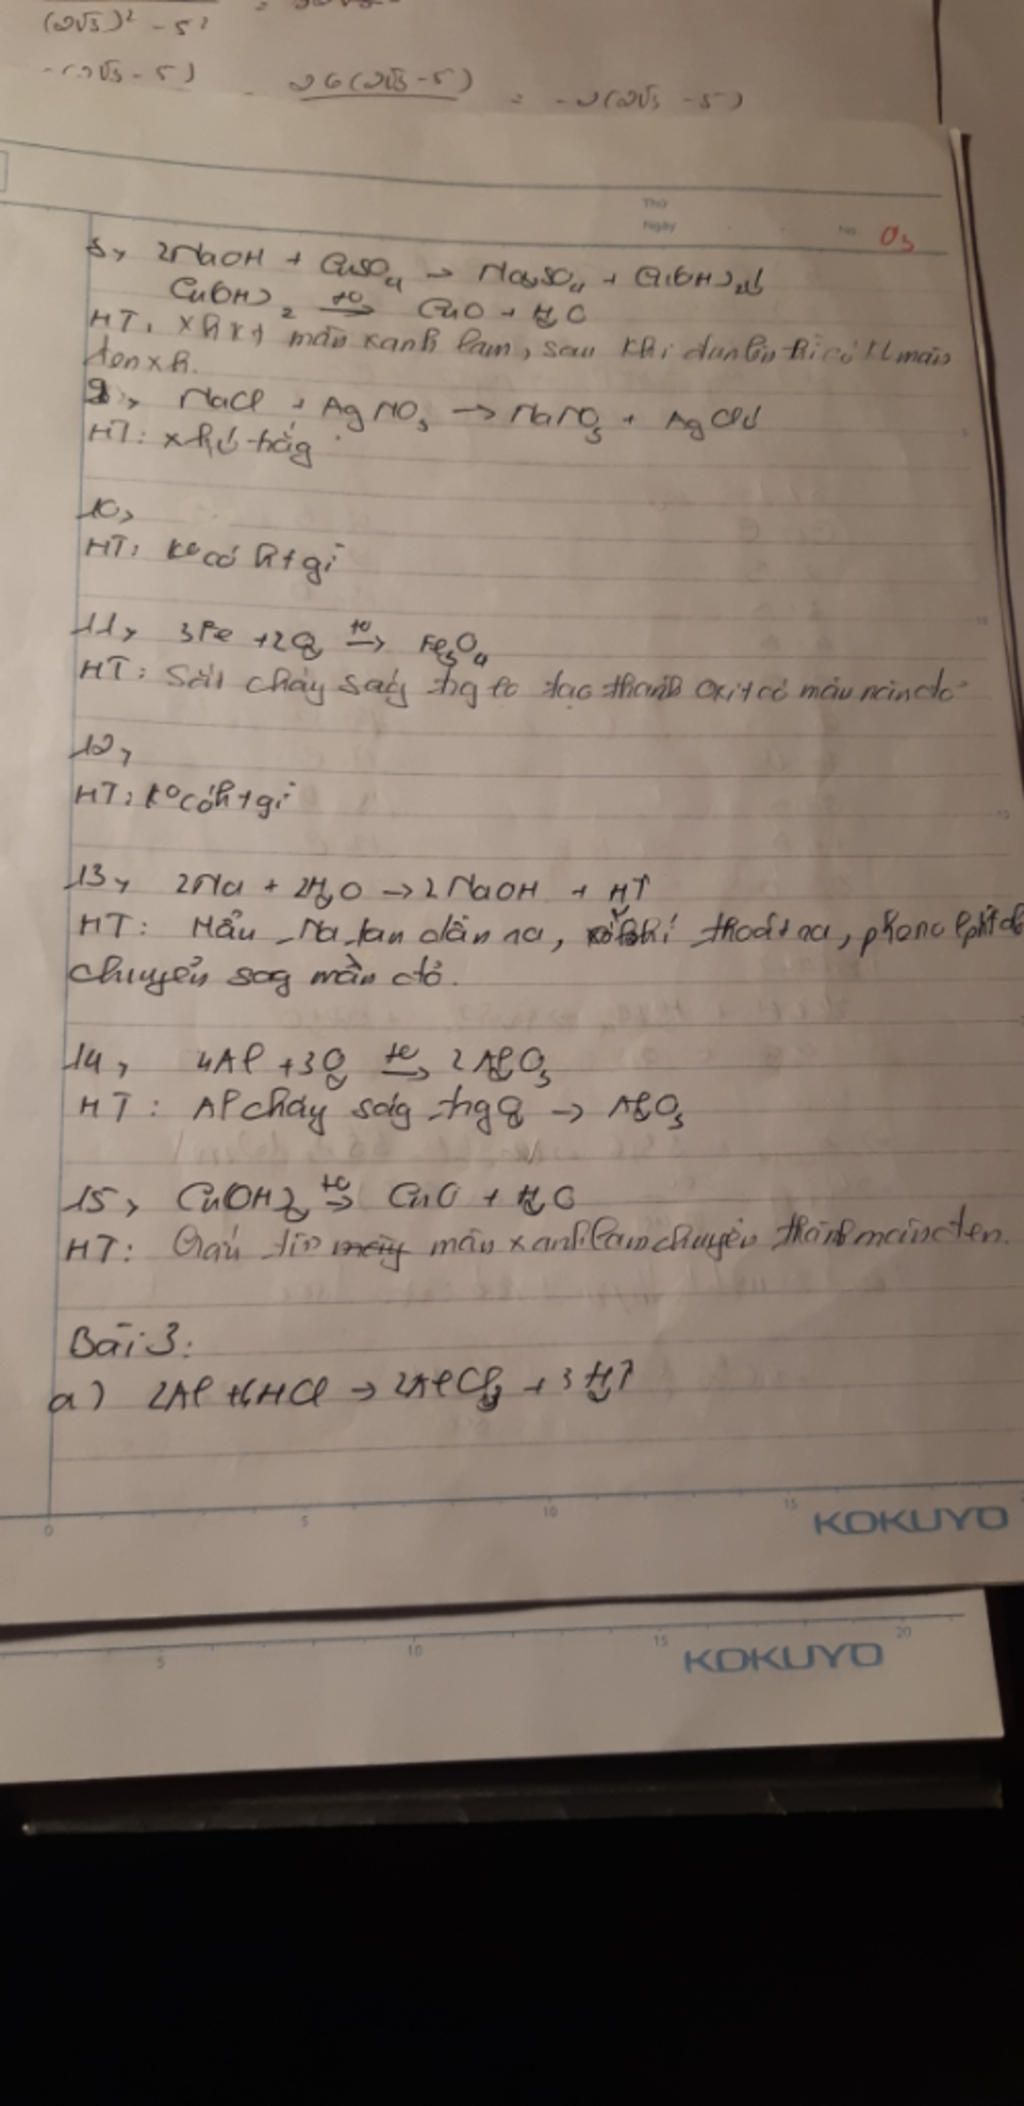 (2√3)² - 5²
-(2√3 - 5)
26(2√3 - 5) = -2(2√3 - 5)
Thứ
Ngày No. 03
8, 2NaOH + CuSO4 → Na2SO4 + Cu(OH)2↓
Cu(OH)2 →to CuO + H2O
HT: xh kt màu xanh lam, sau khi đun lên thì có màu
đen xh.
9, NaCl + AgNO3 → NaNO3 + AgCl↓
HT: xh ↓ trắg
10,
HT: ko có ht gì
11, 3Fe + 2O2 →to Fe3O4
HT: Sắt cháy ság trg tạo thành oxit có màu nâu đỏ
12,
HT: ko có ht gì
13, 2Na + 2H2O → 2NaOH + H2↑
HT: Mẩu Na tan dần ra, khí thoát ra, phenolphtalein
chuyển sag màu đỏ.
14, 4Al + 3O2 →to 2Al2O3
HT: Al cháy ság trg O2 → Al2O3
15, Cu(OH)2 →to CuO + H2O
HT: màu xanh lam chuyển thành màu đen.
Bài 3:
a) 2Al + 6HCl → 2AlCl3 + 3H2↑
0 5 10 15 KOKUYO
5 10 15 20 KOKUYO